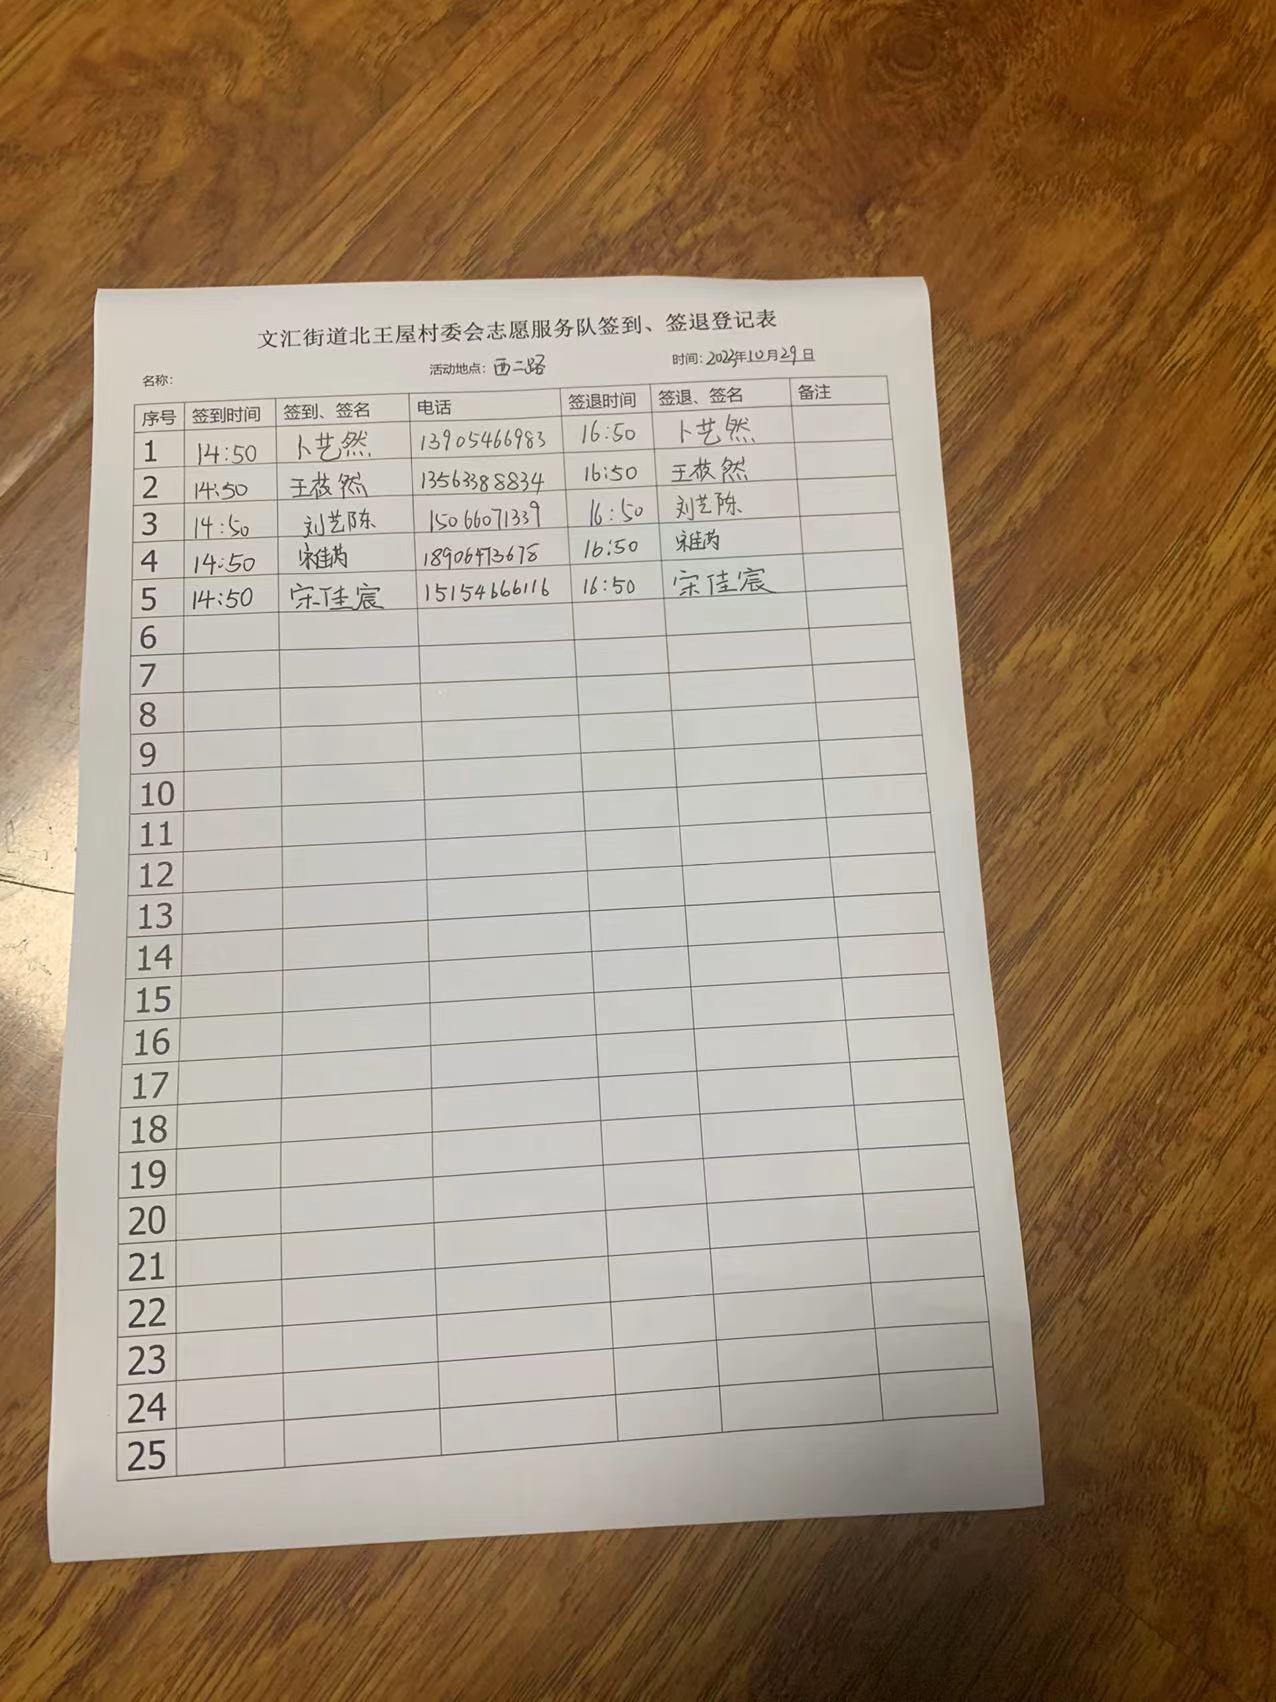 文汇街道北王屋村委会志愿服务队签到、签退登记表
名称: 活动地点: 西二路 时间: 2023年10月29日
序号 签到时间 签到、签名 电话 签退时间 签退、签名 备注
1 14:50 卜艺然 13905466983 16:50 卜艺然
2 14:50 王莜然 13563388834 16:50 王莜然
3 14:50 刘艺陈 15066071339 16:50 刘艺陈
4 14:50 宋佳芮 18906473678 16:50 宋佳芮
5 14:50 宋佳宸 15154666116 16:50 宋佳宸
6
7
8
9
10
11
12
13
14
15
16
17
18
19
20
21
22
23
24
25